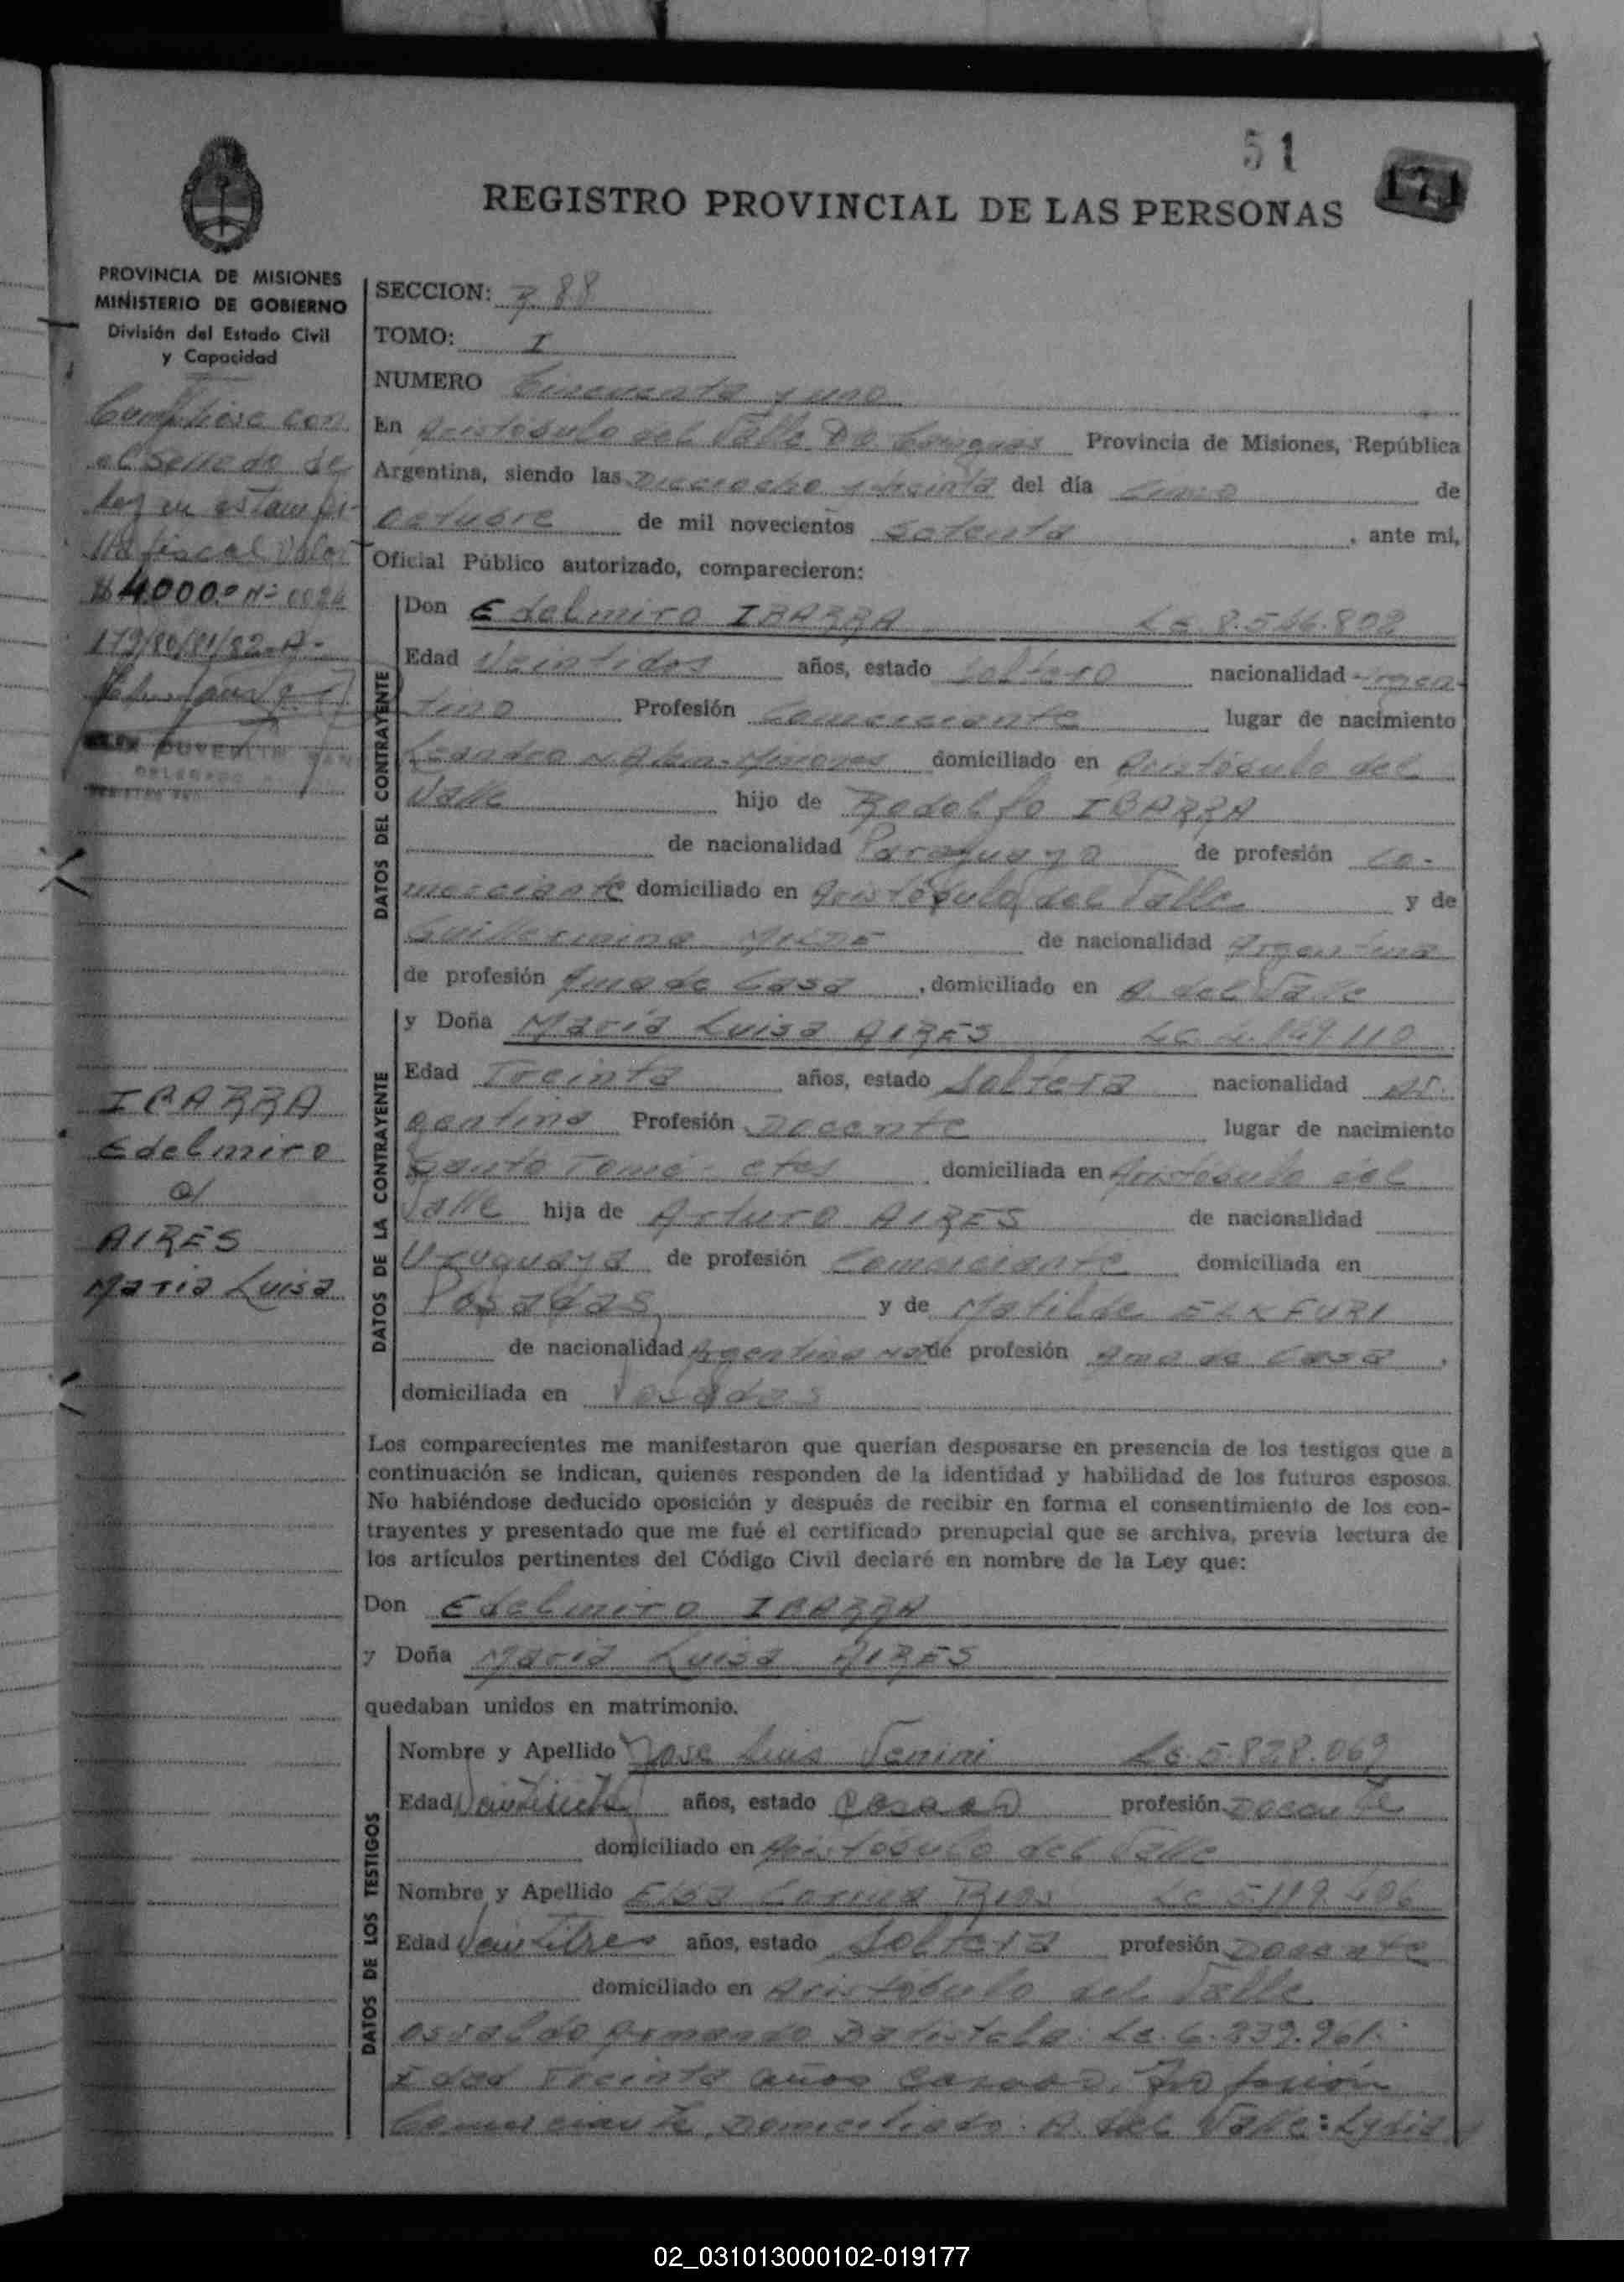 51
171
REGISTRO PROVINCIAL DE LAS PERSONAS
PROVINCIA DE MISIONES
MINISTERIO DE GOBIERNO
División del Estado Civil
y Capacidad
Cumpliose con
el sellado de
ley en estampi-
lla fiscal valor
$ 4.000.= Nº 0024
179/80/81/82-A-
DELEGADO
IBARRA
Edelmiro
c/
AIRES
Maria Luisa
SECCION: 788
TOMO: I
NUMERO Cincuenta y uno
En Aristóbulo del Valle Do Cainguas Provincia de Misiones, República
Argentina, siendo las Dieciocho y treinta del día cinco de
octubre de mil novecientos setenta, ante mi,
Oficial Público autorizado, comparecieron:
DATOS DEL CONTRAYENTE
Don Edelmiro IBARRA LE 8.546.802
Edad Veintidos años, estado soltero nacionalidad Argen-
tino Profesión Comerciante lugar de nacimiento
Leandro N. Alem-Misiones domiciliado en Aristóbulo del
Valle hijo de Rodolfo IBARRA
de nacionalidad Paraguayo de profesión co-
merciante domiciliado en Aristóbulo del Valle y de
Guillermina de nacionalidad Argentina
de profesión Ama de Casa, domiciliado en A. del Valle
DATOS DE LA CONTRAYENTE
y Doña Maria Luisa AIRES LC 4.149.110
Edad Treinta años, estado Soltera nacionalidad Ar-
gentina Profesión Docente lugar de nacimiento
Santo Tomé - ctes domiciliada en Aristóbulo del
Valle hija de Arturo AIRES de nacionalidad
Uruguaya de profesión Comerciante domiciliada en
Posadas y de Matilde ELKFURI
de nacionalidad Argentina de profesión Ama de Casa,
domiciliada en Posadas
Los comparecientes me manifestaron que querían desposarse en presencia de los testigos que a
continuación se indican, quienes responden de la identidad y habilidad de los futuros esposos.
No habiéndose deducido oposición y después de recibir en forma el consentimiento de los con-
trayentes y presentado que me fué el certificado prenupcial que se archiva, previa lectura de
los artículos pertinentes del Código Civil declaré en nombre de la Ley que:
Don Edelmiro IBARRA
y Doña Maria Luisa AIRES
quedaban unidos en matrimonio.
DATOS DE LOS TESTIGOS
Nombre y Apellido Jose Luis Venini LE 5.828.069
Edad Veintisiete años, estado casado profesión Docente
domiciliado en Aristobulo del Valle
Nombre y Apellido Elsa Corina Rios LC 5.119.406
Edad Veintitres años, estado Soltera profesión Docente
domiciliado en Aristóbulo del Valle
Osvaldo Armando Batistela: LE. 6.239.961.
Edad Treinta años casado. Profesión
Comerciante, Domiciliado: A. del Valle: Lydia
02_031013000102-019177